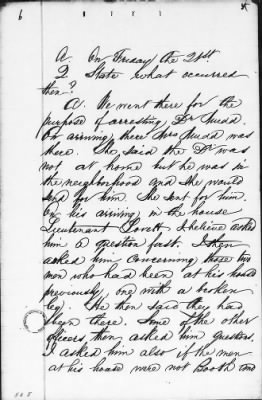 6
A. On Friday the 21st.
Q. State what occurred
then?
A. We went there for the
purpose of arresting Dr Mudd.
On arriving there Mrs Mudd was
there. She said the Dr was
not at home but he was in
the neighborhood and she would
send for him. She sent for him.
On his arriving in the house
Lieutenant Lovett, I believe asked
him a question first. I then
asked him concerning those two
men who had been at his house
previously, one with a broken
leg. He then said they had
been there. Some of the other
officers then asked him questions.
I asked him also if the men
at his house were not Booth and